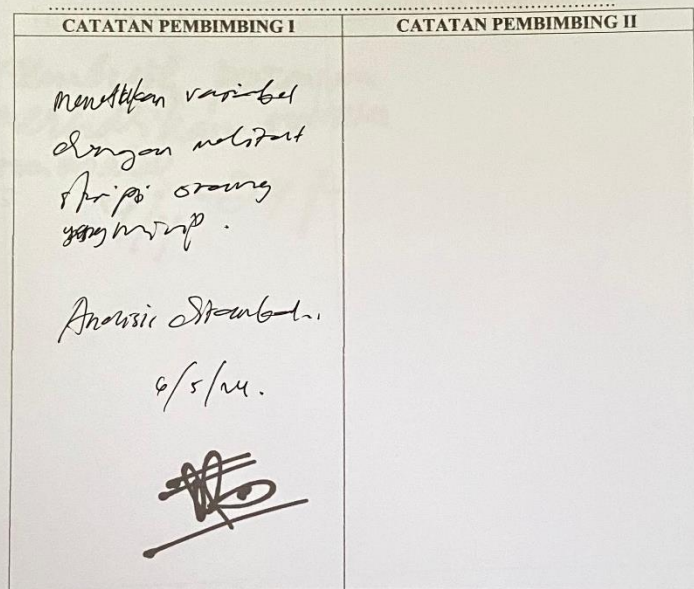 CATATAN PEMBIMBING I
CATATAN PEMBIMBING II
menentukan variabel
dengan melihat
skripsi orang
yang mirip.
Analisis
6/5/24.